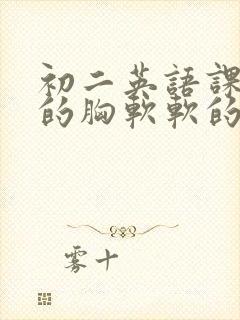 初二英語課
的胸軟軟的
雾十